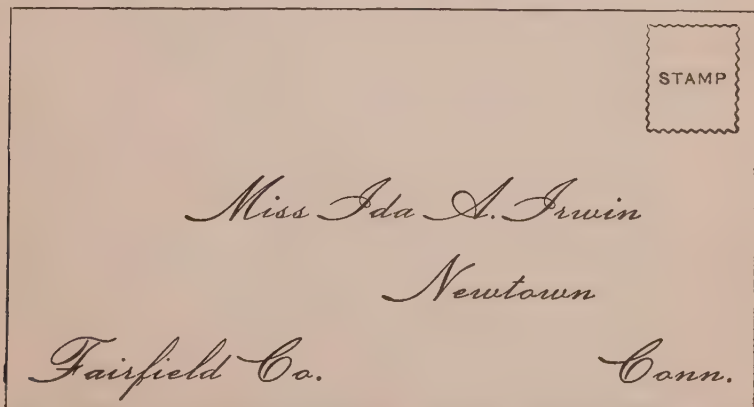 STAMP
Miss Ida A. Irwin
Newtown
Fairfield Co. Conn.